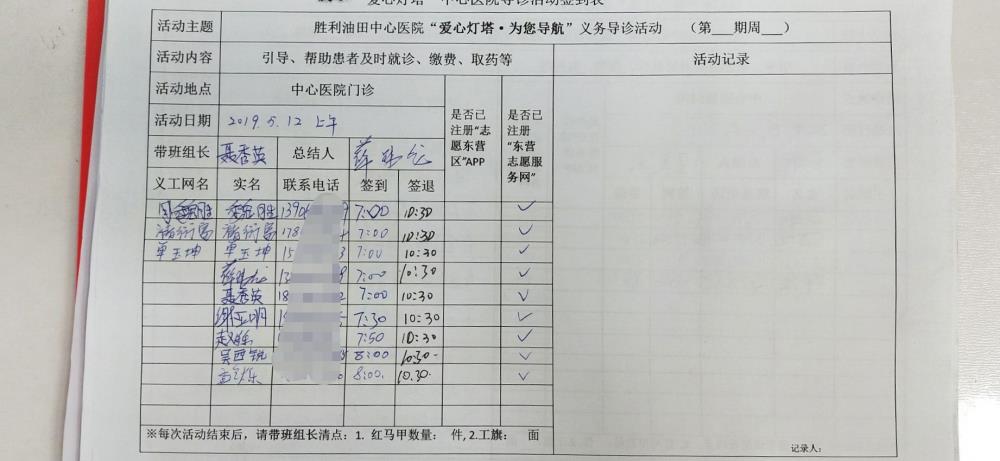 爱心灯塔 中心医院导诊活动签到表
活动主题 胜利油田中心医院“爱心灯塔·为您导航”义务导诊活动 （第___期周___）
活动内容 引导、帮助患者及时就诊、缴费、取药等 活动记录
活动地点 中心医院门诊 是否已注册“志愿东营区”APP 是否已注册“东营志愿服务网”
活动日期 2019.5.12 上午
带班组长 聂秀英 总结人
义工网名 实名 联系电话 签到 签退
7:00 10:30 ✓
178 7:00 10:30 ✓
单玉坤 单玉坤 15 3 7:00 10:30 ✓
7:00 10:30 ✓
聂秀英 18 2 7:00 10:30 ✓
7:30 10:30 ✓
7:50 10:30 ✓
8:00 10:30 ✓
8:00 10:30 ✓
※每次活动结束后，请带班组长清点：1. 红马甲数量： 件, 2.工旗： 面
记录人：